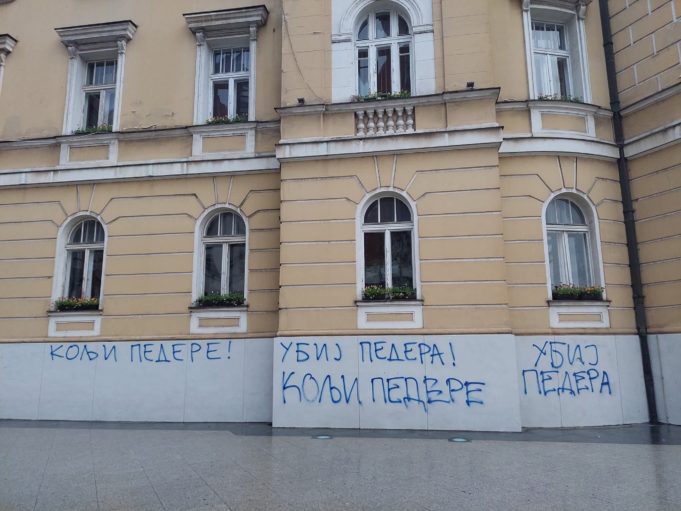 КОЉИ ПЕДЕРЕ!
УБИЈ ПЕДЕРА!
КОЉИ ПЕДЕРЕ
УБИЈ
ПЕДЕРА